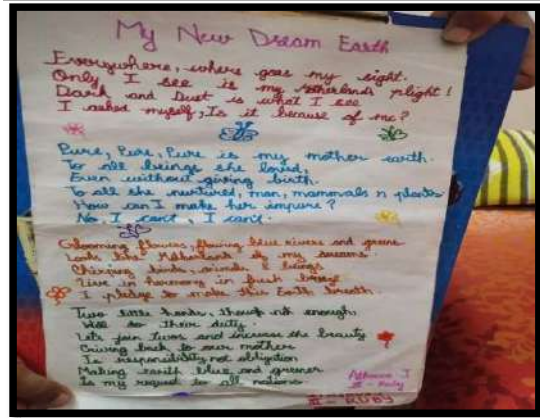 My New Dream Earth
Everywhere, where goes my sight.
Only I see is my Motherlands plight!
Dark and Dust is what I see
I asked myself, Is it because of me?
Pure, Pure, Pure is my mother earth.
To all beings she loved,
Even without giving birth.
To all she nurtured, man, mammals n plants
How can I make her impure?
No, I can't, I can't.
Blooming flowers, flowing blue rivers and greens
Looks like Motherland of my dreams.
Chirping birds, animals & beings
Live in harmony in fresh
I pledge to make this Earth breath.
Two little hands, though not enough,
Will do their duty.
Lets join twos and increase the beauty
Giving back to our mother
Is responsibility not obligation
Making earth blue and greener
Is my request to all nations.
III - Ruby
III - RUBY